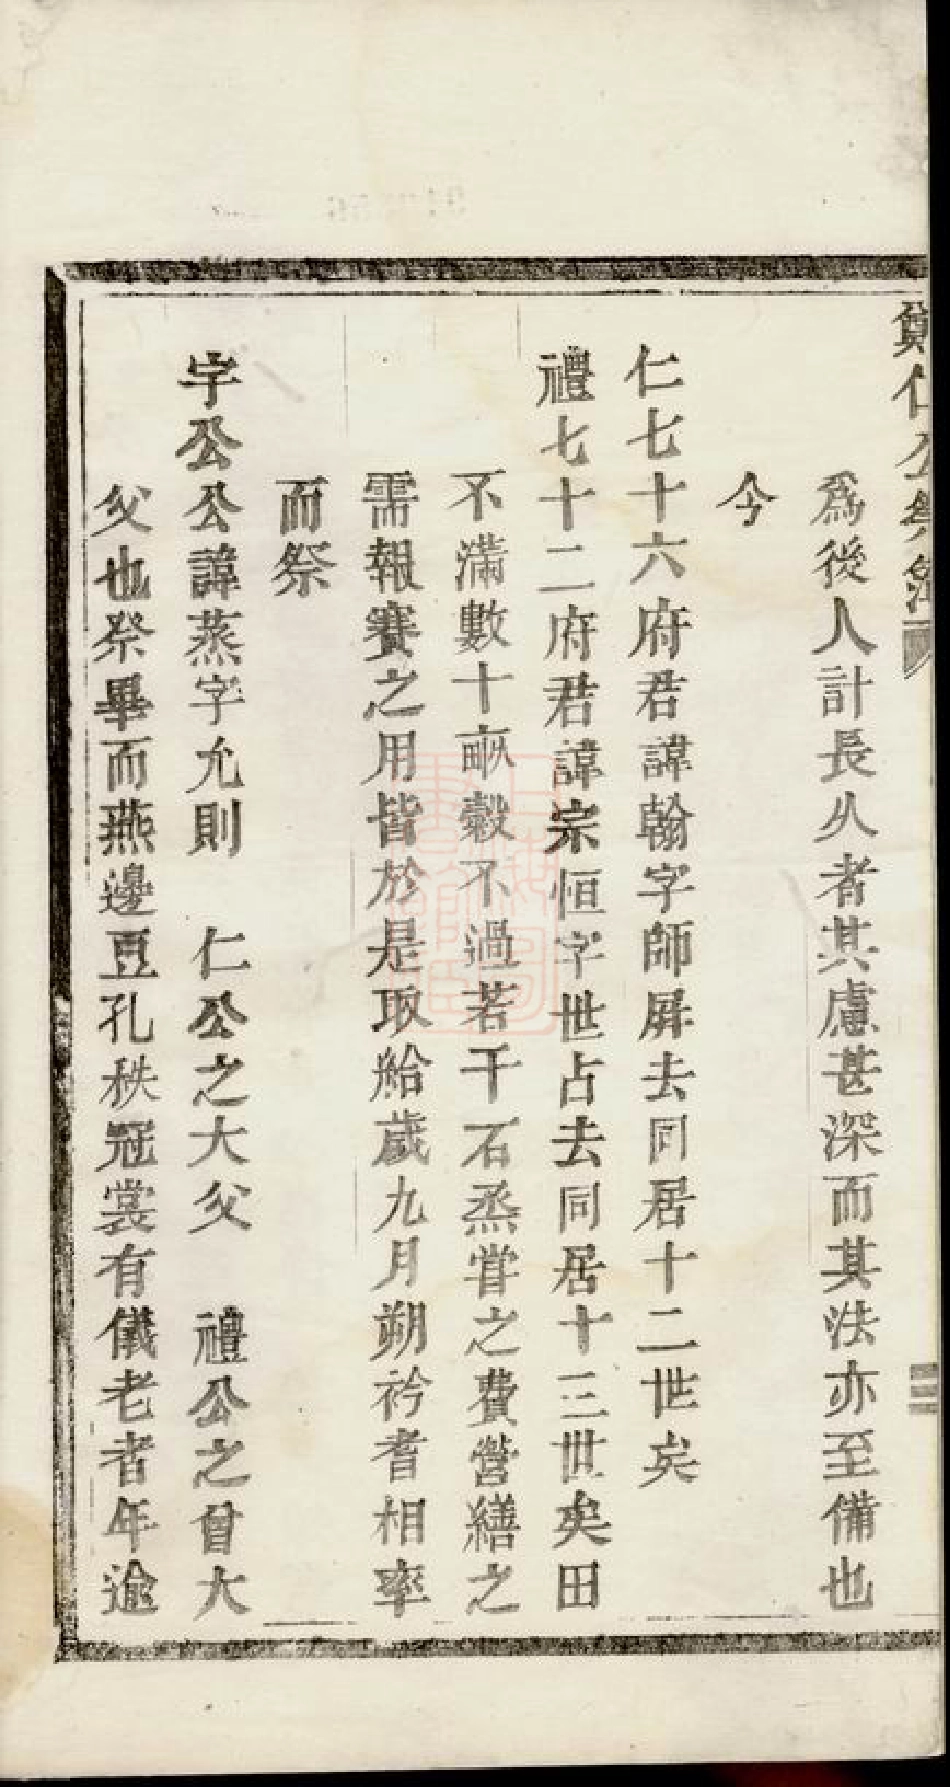 爲後人計長久者其慮甚深而其法亦至備也
今
仁七十六府君諱翰字師屏去同居十二世矣
禮七十二府君諱宗恒字世占去同居十三世矣田
不滿數十畝穀不過若干石烝甞之費營繕之
需報賽之用皆於是取給歲九月朔衿耆相率
而祭
字公公諱蒸字允則 仁公之大父 禮公之曾大
父也祭畢而燕邊豆孔秩冠裳有儀老者年逾